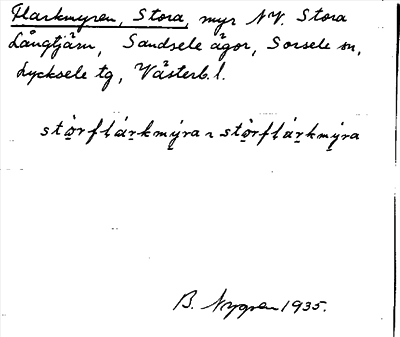 Flarkmyren, Stora, myr NV. Stora
Långtjärn, Sandsele ägor, Sorsele sn,
Lycksele tg, Västerb. l.
stòrflárkmýra ~ stòrflárkmýra
B. Nygren 1935.